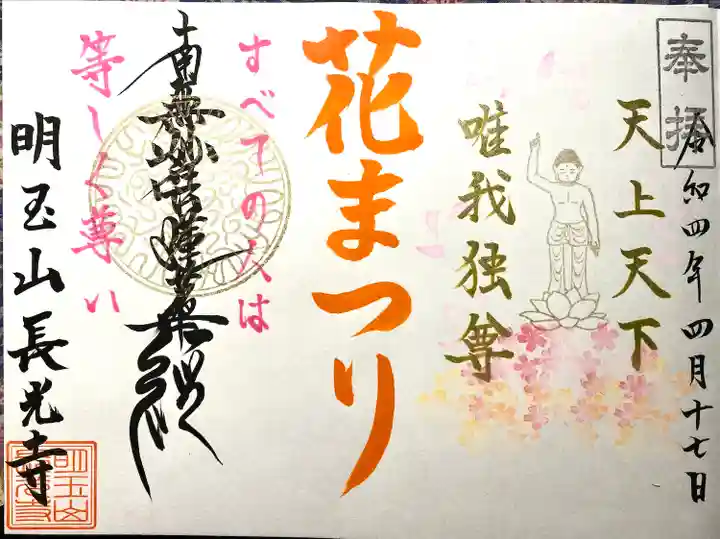 奉拝
令和四年四月十七日
天上天下
唯我独尊
花まつり
すべての人は
等しく尊い
南無妙法蓮華経
明玉山長光寺
明玉山
長光寺